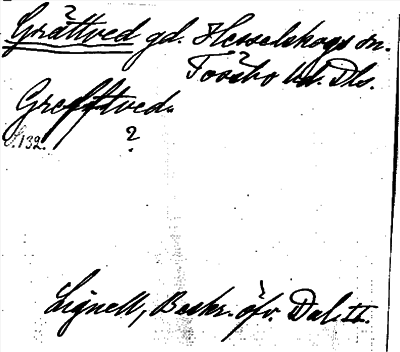 Gråttved gd. Hesselskogs sn.
Tössbo hd. Dls.
Grefftved.
S.132. ?
Lignell, Beskr. öfv. Dal. th.